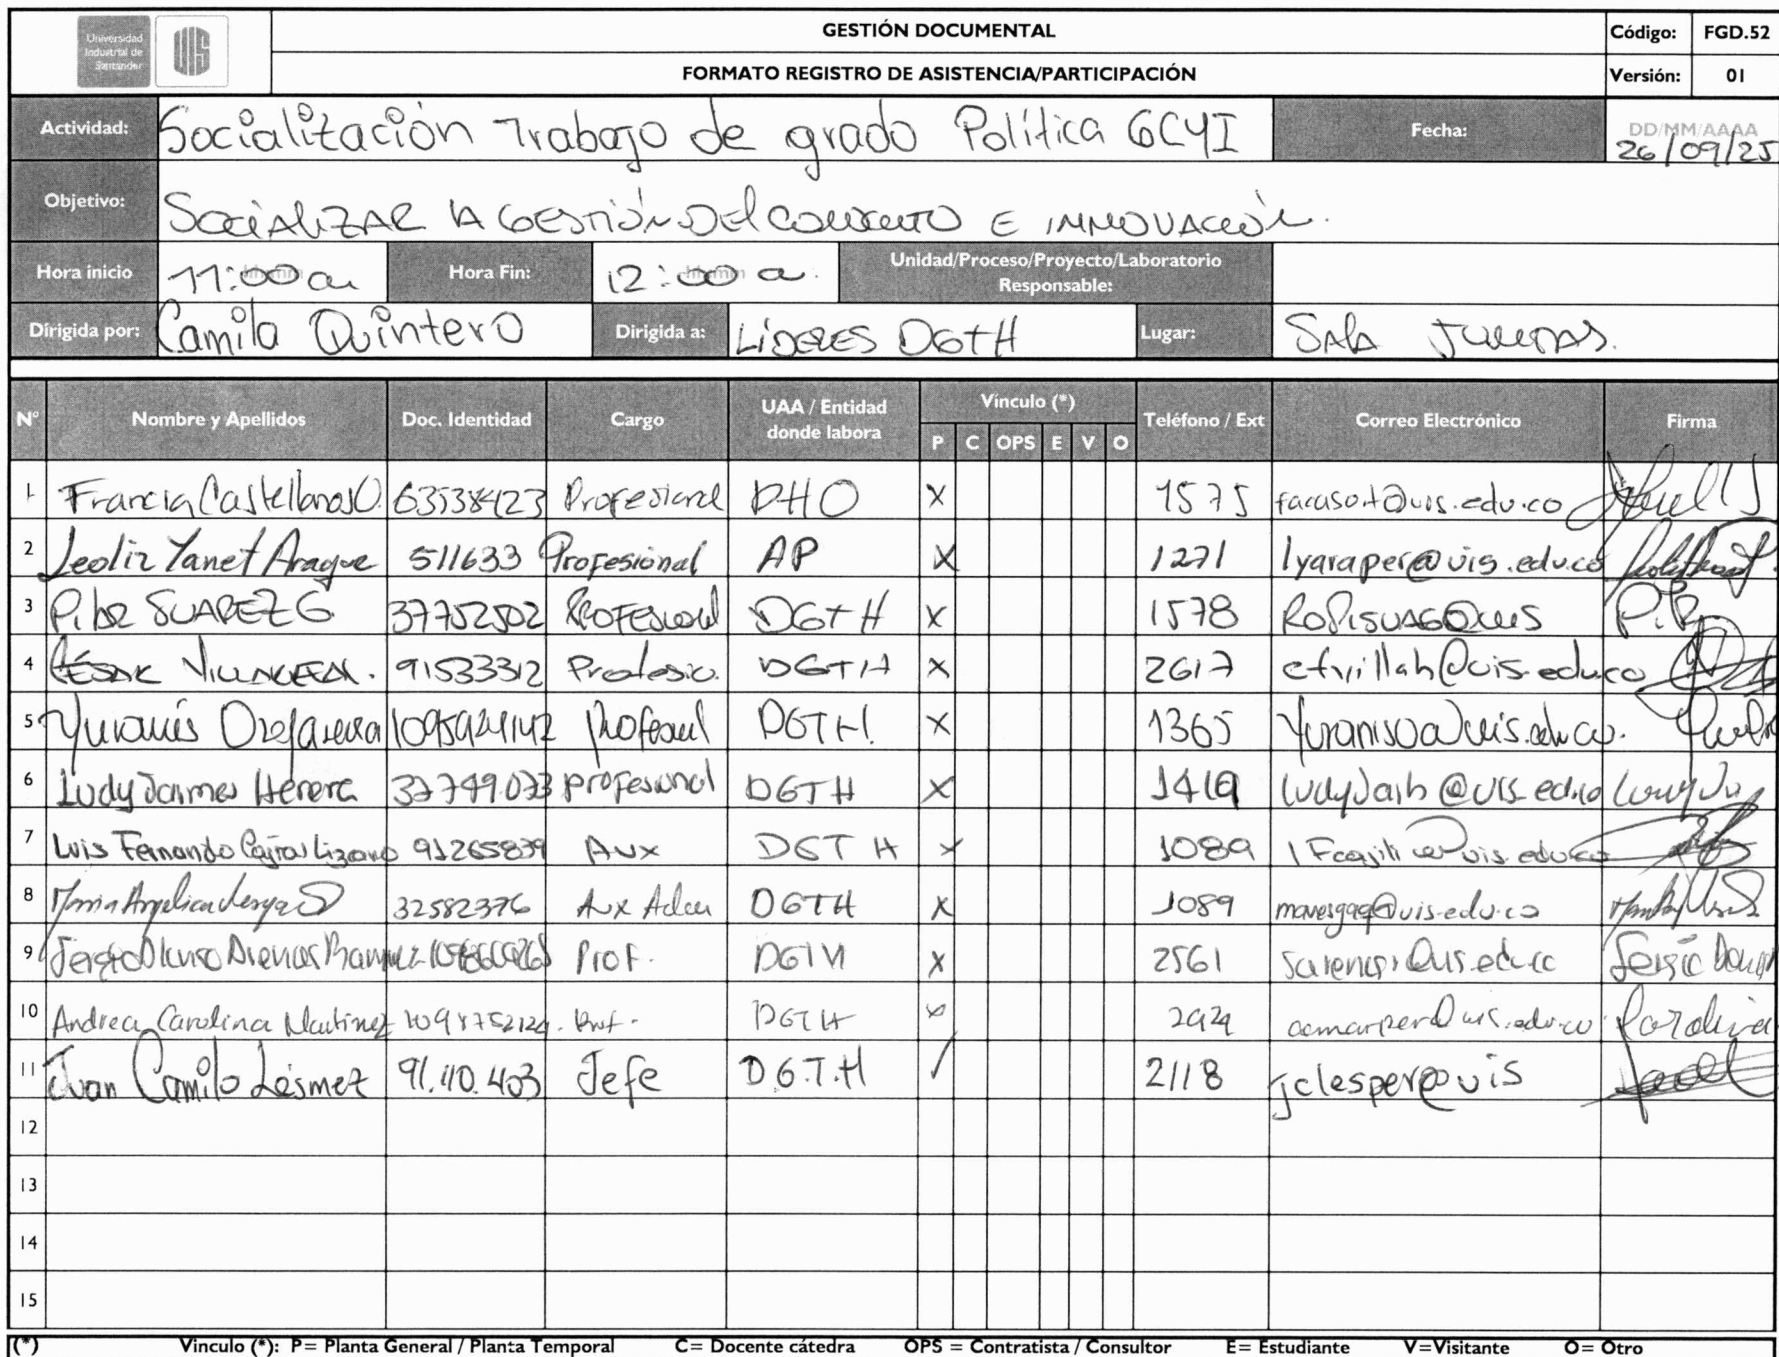 Universidad
Industrial de
Santander
UIS
GESTIÓN DOCUMENTAL
Código: FGD.52
FORMATO REGISTRO DE ASISTENCIA/PARTICIPACIÓN
Versión: 01
Actividad: Socialización Trabajo de grado Política GCYI Fecha: DD/MM/AAAA 26/09/25
Objetivo: SOCIALIZAR LA GESTIÓN DEL E INNOVACIÓN.
Hora inicio 11:00 a. Hora Fin: 12:00 a. Unidad/Proceso/Proyecto/Laboratorio Responsable:
Dirigida por: Camila Quintero Dirigida a: LÍDERES DGTH Lugar: SALA JUNTAS.
N° Nombre y Apellidos Doc. Identidad Cargo UAA / Entidad donde labora Vínculo (*) Teléfono / Ext Correo Electrónico Firma
P C OPS E V O
1 Francia Castellanos O. 63538423 Profesional DHO X 1575 @uis.edu.co
2 Leoliz Yanet Araque 511633 Profesional AP X 1271 lyaraper@uis.edu.co
3 Pilar SUAREZ G 37752502 PROFESIONAL DGTH X 1578 ROPISUAG@UIS
4 CÉSAR 91533312 Profesio. DGTH X 2617 cfvillah@uis.edu.co
5 Yuranis 1095924142 DGTH. X 1365 Yuranisoa@uis.edu.co.
6 Ludy Jaimes Herrera 37749.073 profesional DGTH X 1419 ludyjaih@uis.edu.co
7 Luis Fernando 91265839 Aux DGTH X 1089 @uis.edu.co
8 Maria Angelica 32582376 Aux DGTH X 1089 @uis.edu.co
9 Sergio Arenas Ramirez Prof. DGTH X 2561 @uis.edu.co Sergio
10 Andrea Carolina Martinez 1098752124. Prof. DGTH X 2929 @uis.edu.co Carolina
11 Juan Camilo Lésmez 91.110.403 Jefe D.G.T.H / 2118 jclesper@uis
12
13
14
15
(*) Vinculo (*): P= Planta General / Planta Temporal C= Docente cátedra OPS = Contratista / Consultor E= Estudiante V=Visitante O= Otro